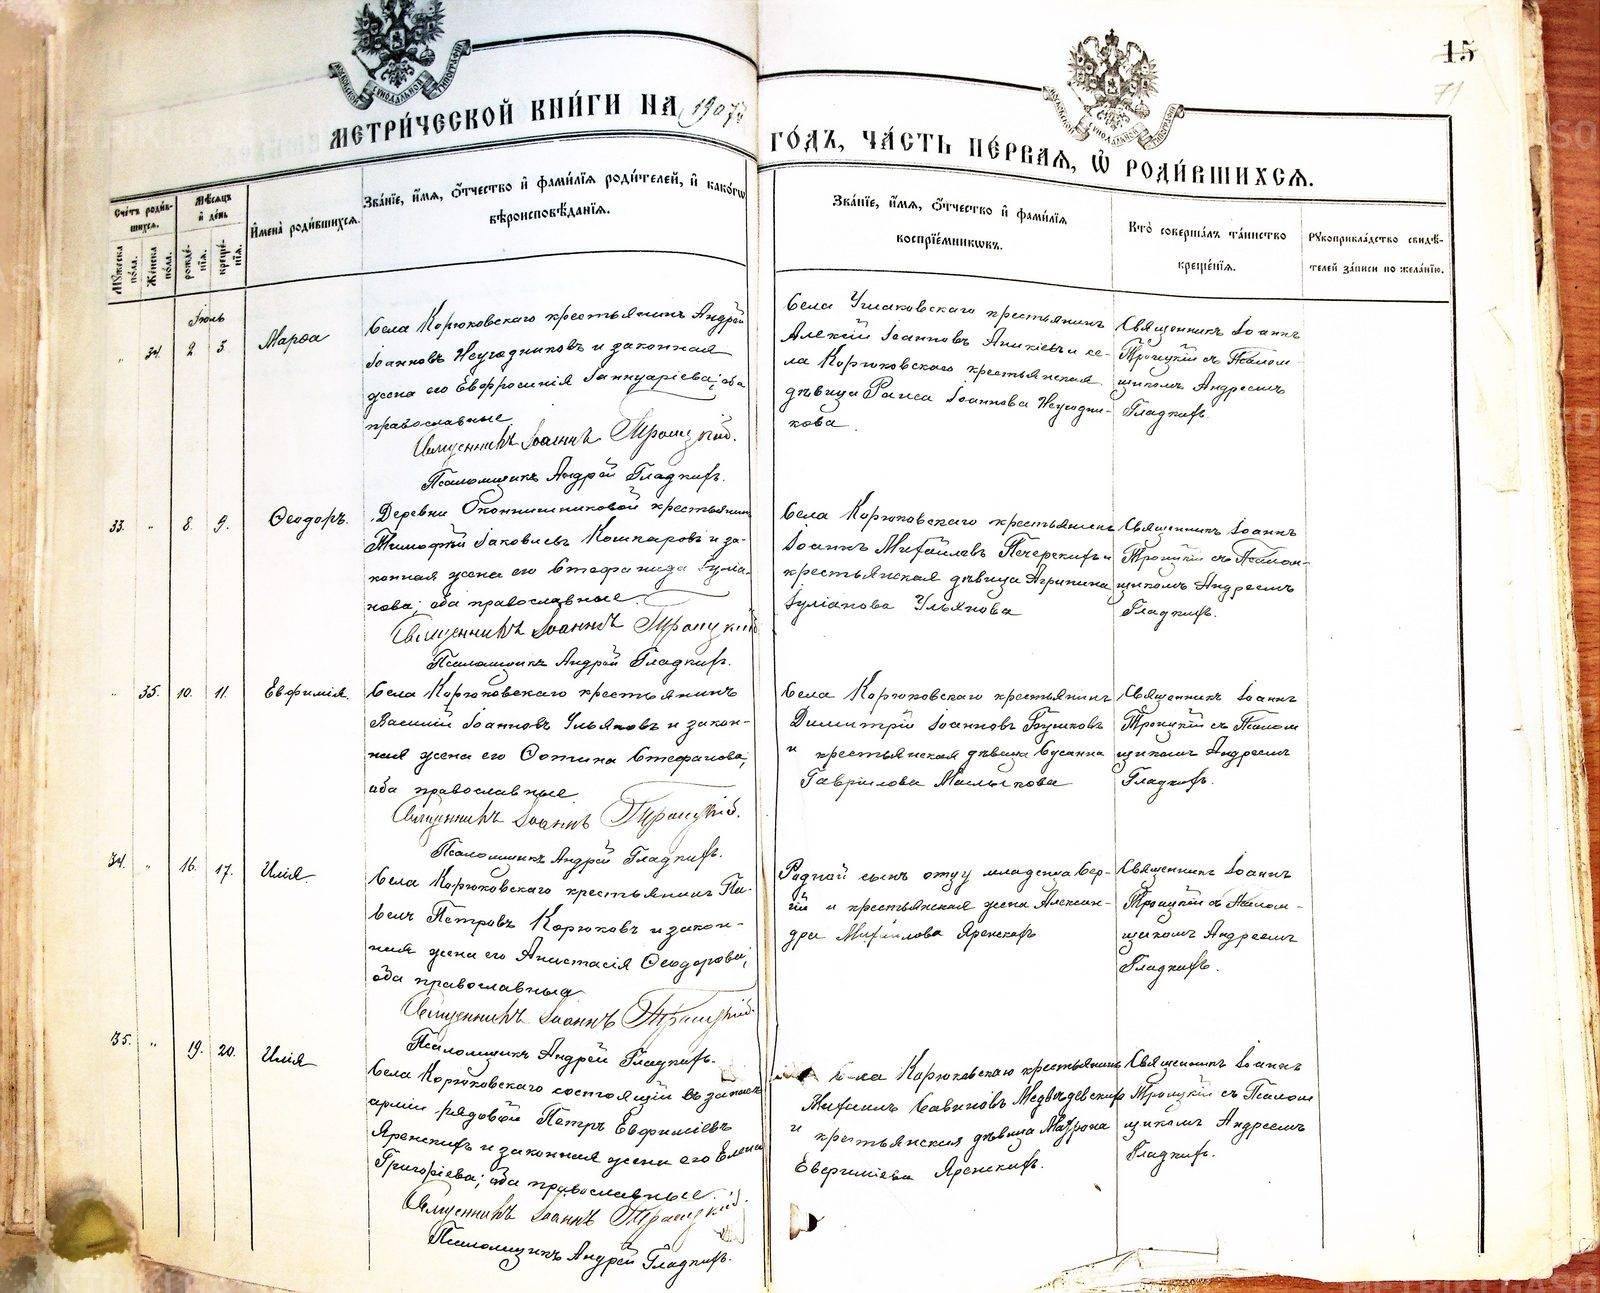 МЕТРИ́ЧЕСКОЙ КНИ́ГИ НА 1907й
ГО́ДЪ, ЧА́СТЬ ПЕ́РВАЯ, Ѿ РОДИ́ВШИХСЯ.
15
71
Сче́тъ роди́в-
шихся.
Му́жеска по́ла.
Же́нска по́ла.
Мѣ́сяцъ
и҆ де́нь
рожде́-
нїя.
креще́-
нїя.
И҆мена̀ роди́вшихся.
Зва́нїе, и҆́мя, ѻ҆́тчество и҆ фами́лїя роди́телей, и҆ како́гѡ
вѣроисповѣ́данїя.
Зва́нїе, и҆́мя, ѻ҆́тчество и҆ фами́лїя
воспрїе́мникѡвъ.
Кто̀ соверша́лъ та́инство
креще́нїя.
Рꙋкоприкла́дство свидѣ́-
телей за́писи по жела́нїю.
Іюль
" 34. 2 3. Марѳа
Села Корюковскаго крестьянинъ Андрей
Іоанновъ Неугодниковъ и законная
жена его Евфросинія Іаннуаріева; оба
православные
Священникъ Іоаннъ Троицкій.
Псаломщикъ Андрей Гладкихъ.
Села Уксаковскаго крестьянинъ
Алексій Іоанновъ Аникіевъ и се-
ла Корюковскаго крестьянская
дѣвица Раиса Іоаннова Неугодни-
кова.
Священникъ Іоаннъ
Троицкій съ Псалом-
щикомъ Андреемъ
Гладкихъ.
33. " 8. 9. Ѳеодоръ.
Деревни крестьянинъ
Тимофей Іаковлевъ Кошкаровъ и за-
конная жена его Стефанида Іуліа-
нова; оба православные.
Священникъ Іоаннъ Троицкій
Псаломщикъ Андрей Гладкихъ.
Села Корюковскаго крестьянинъ
Іоаннъ Михайловъ Печерскихъ и
крестьянская дѣвица Агрипина
Іуліанова Ульянова
Священникъ Іоаннъ
Троицкій съ Псалом-
щикомъ Андреемъ
Гладкихъ.
" 35. 10. 11. Евфимія.
Села Корюковскаго крестьянинъ
Василій Іоанновъ Ульяновъ и закон-
ная жена его Фотина Стефанова;
оба православные
Священникъ Іоаннъ Троицкій.
Псаломщикъ Андрей Гладкихъ.
Села Корюковскаго крестьянинъ
Димитрій Іоанновъ
и крестьянская дѣвица Сусанна
Гавриилова Маслыкова
Священникъ Іоаннъ
Троицкій съ Псалом
щикомъ Андреемъ
Гладкихъ.
34. " 16. 17. Илія.
Села Корюковскаго крестьянинъ Па-
велъ Петровъ Корюковъ и закон-
ная жена его Анастасія Ѳеодорова;
оба православные
Священникъ Іоаннъ Троицкій.
Псаломщикъ Андрей Гладкихъ.
Родной сынъ отцу младенца Сер-
гій и крестьянская жена Алексан-
дра Михайлова Яренскихъ
Священникъ Іоаннъ
Троицкій съ Псалом-
щикомъ Андреемъ
Гладкихъ.
35. " 19. 20. Илія
Села Корюковскаго состоящій въ запасѣ
арміи рядовой Петръ Евфиміевъ
Яренскихъ и законная жена его Елена
Григоріева; оба православные.
Священникъ Іоаннъ Троицкій.
Псаломщикъ Андрей Гладкихъ.
Села Корюковскаго крестьянинъ
Михаилъ Савиновъ Медвѣдевскихъ
и крестьянская дѣвица Матрона
Евфиміева Яренскихъ.
Священникъ Іоаннъ
Троицкій съ Псалом
щикомъ Андреемъ
Гладкихъ.